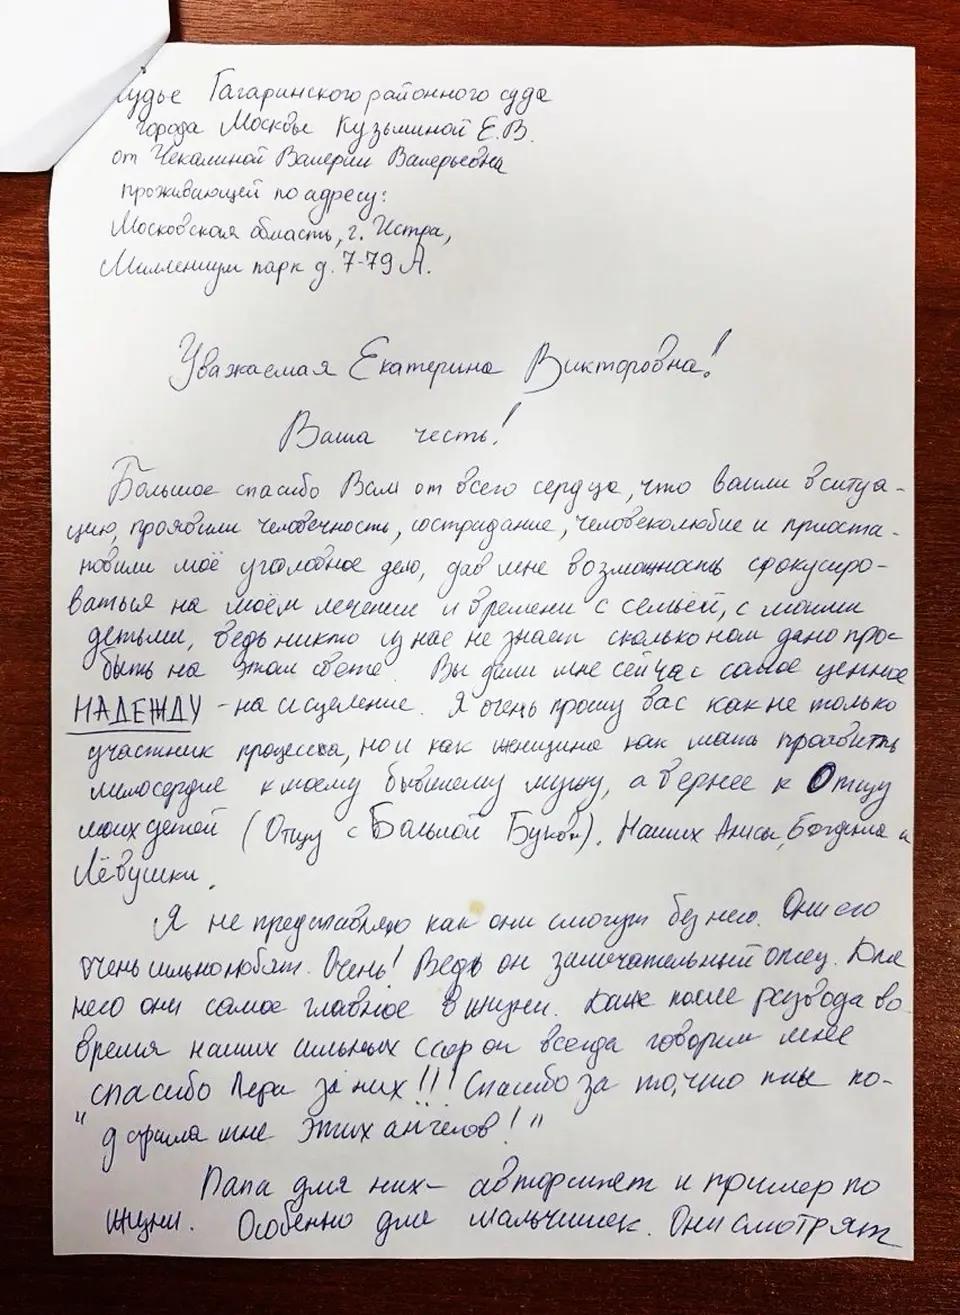 Судье Гагаринского районного суда
города Москвы Кузьминой Е.В.
от Чекалиной Валерии Валерьевна
проживающей по адресу:
Московская область, г. Истра,
Миллениум парк д. 7-79 А.
Уважаемая Екатерина Викторовна!
Ваша честь!
Большое спасибо Вам от всего сердца, что вошли в ситуа-
цию, проявили человечность, сострадание, человеколюбие и приоста-
новили моё уголовное дело, дав мне возможность сфокусиро-
ваться на моём лечение и времени с семьёй, с моими
детьми, ведь никто из нас не знает сколько нам дано про-
быть на этом свете. Вы дали мне сейчас самое ценное
НАДЕЖДУ - на исцеление. Я очень прошу вас как не только
участник процесса, но и как женщина как мать проявить
милосердие к моему бывшему мужу, а вернее к Отцу
моих детей (Отцу с Большой Буквы). Наших Алисы, Богдана и
Лёвушки.
Я не представляю как они смогут без него. Они его
очень сильно любят. Очень! Ведь он замечательный отец. Для
него они самое главное в жизни. Даже после развода во
время наших сильных ссор он всегда говорит мне
спасибо Лера за них!!! Спасибо за то, что ты по-
"дарила мне этих ангелов!"
Папа для них - авторитет и пример по
жизни. Особенно для мальчишек. Они смотрят